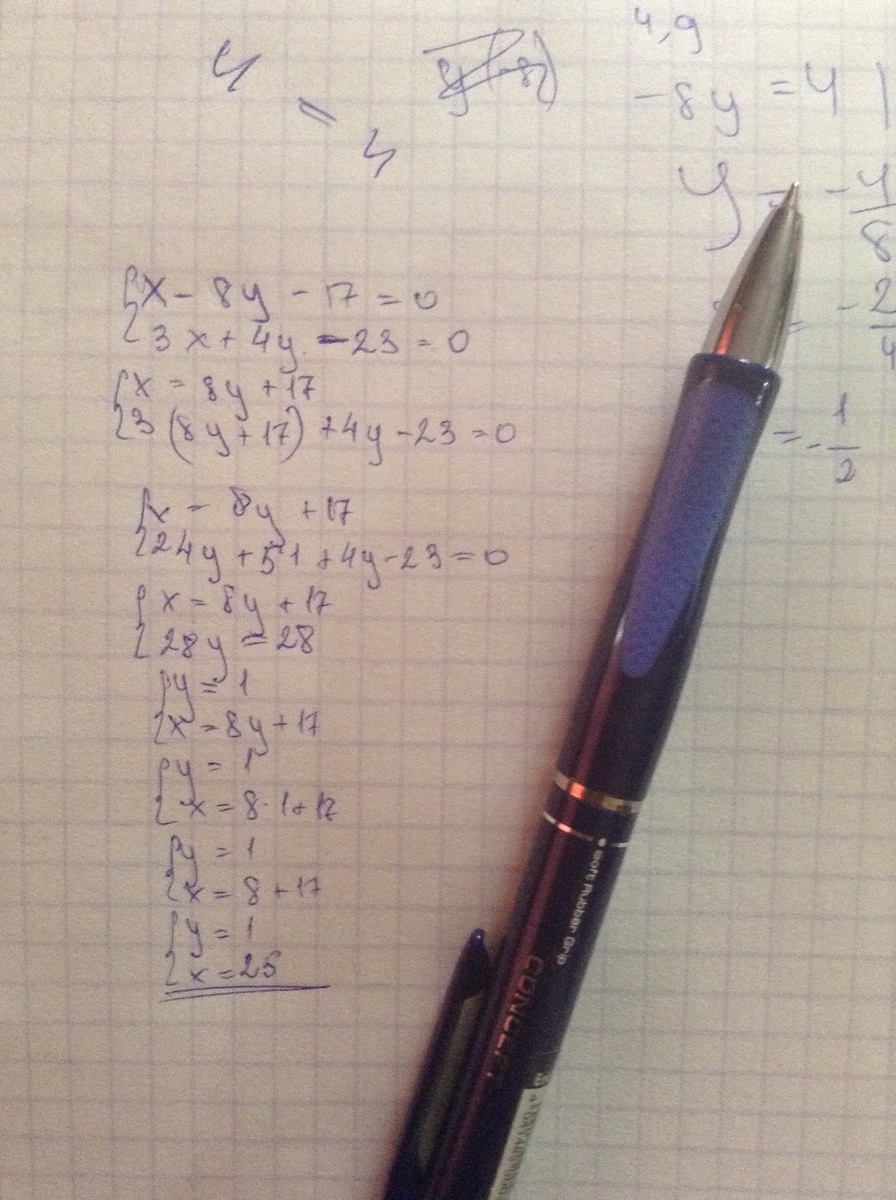 4
=
4
4,9
-8y = 4
y = -4/8
= -2/4
= -1/2
{x - 8y - 17 = 0
{3x + 4y - 23 = 0
{x = 8y + 17
{3(8y + 17) + 4y - 23 = 0
{x = 8y + 17
{24y + 51 + 4y - 23 = 0
{x = 8y + 17
{28y = 28
{y = 1
{x = 8y + 17
{y = 1
{x = 8·1 + 17
{y = 1
{x = 8 + 17
{y = 1
{x = 25
Soft Rubber Grip